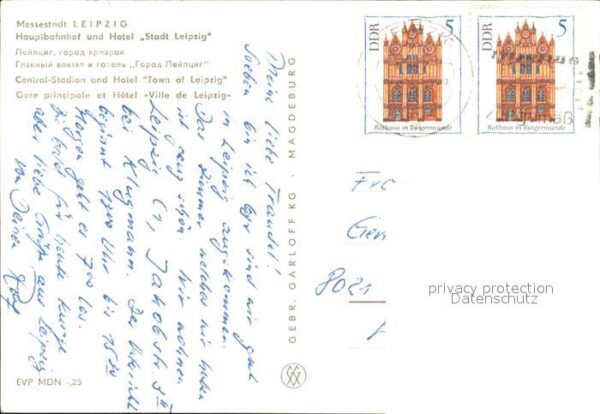 Messestadt LEIPZIG
Hauptbahnhof und Hotel „Stadt Leipzig"
Лейпциг, город ярмарок
Главный вокзал и готель „Город Лейпциг"
Central-Stadion and Hotel "Town of Leipzig"
Gare principale et Hôtel «Ville de Leipzig»
Meine liebe Traudel!
Soeben bin ich sind wir gut
in Leipzig angekommen.
Das Zimmer welches wir haben
ist ganz schön. Wir wohnen
Leipzig C1, Jakobstr.
bei Klugmann. Der Unterricht
beginnt Uhr bis
Morgen geht es 7.00 los.
für heute
aber liebe Grüße aus Leipzig
von Deiner
GEBR. GARLOFF KG · MAGDEBURG
EVP MDN -,25
DDR 5
Rathaus in Tangermünde
DDR 5
Rathaus in Tangermünde
Fr
Gen
8021
privacy protection
Datenschutz